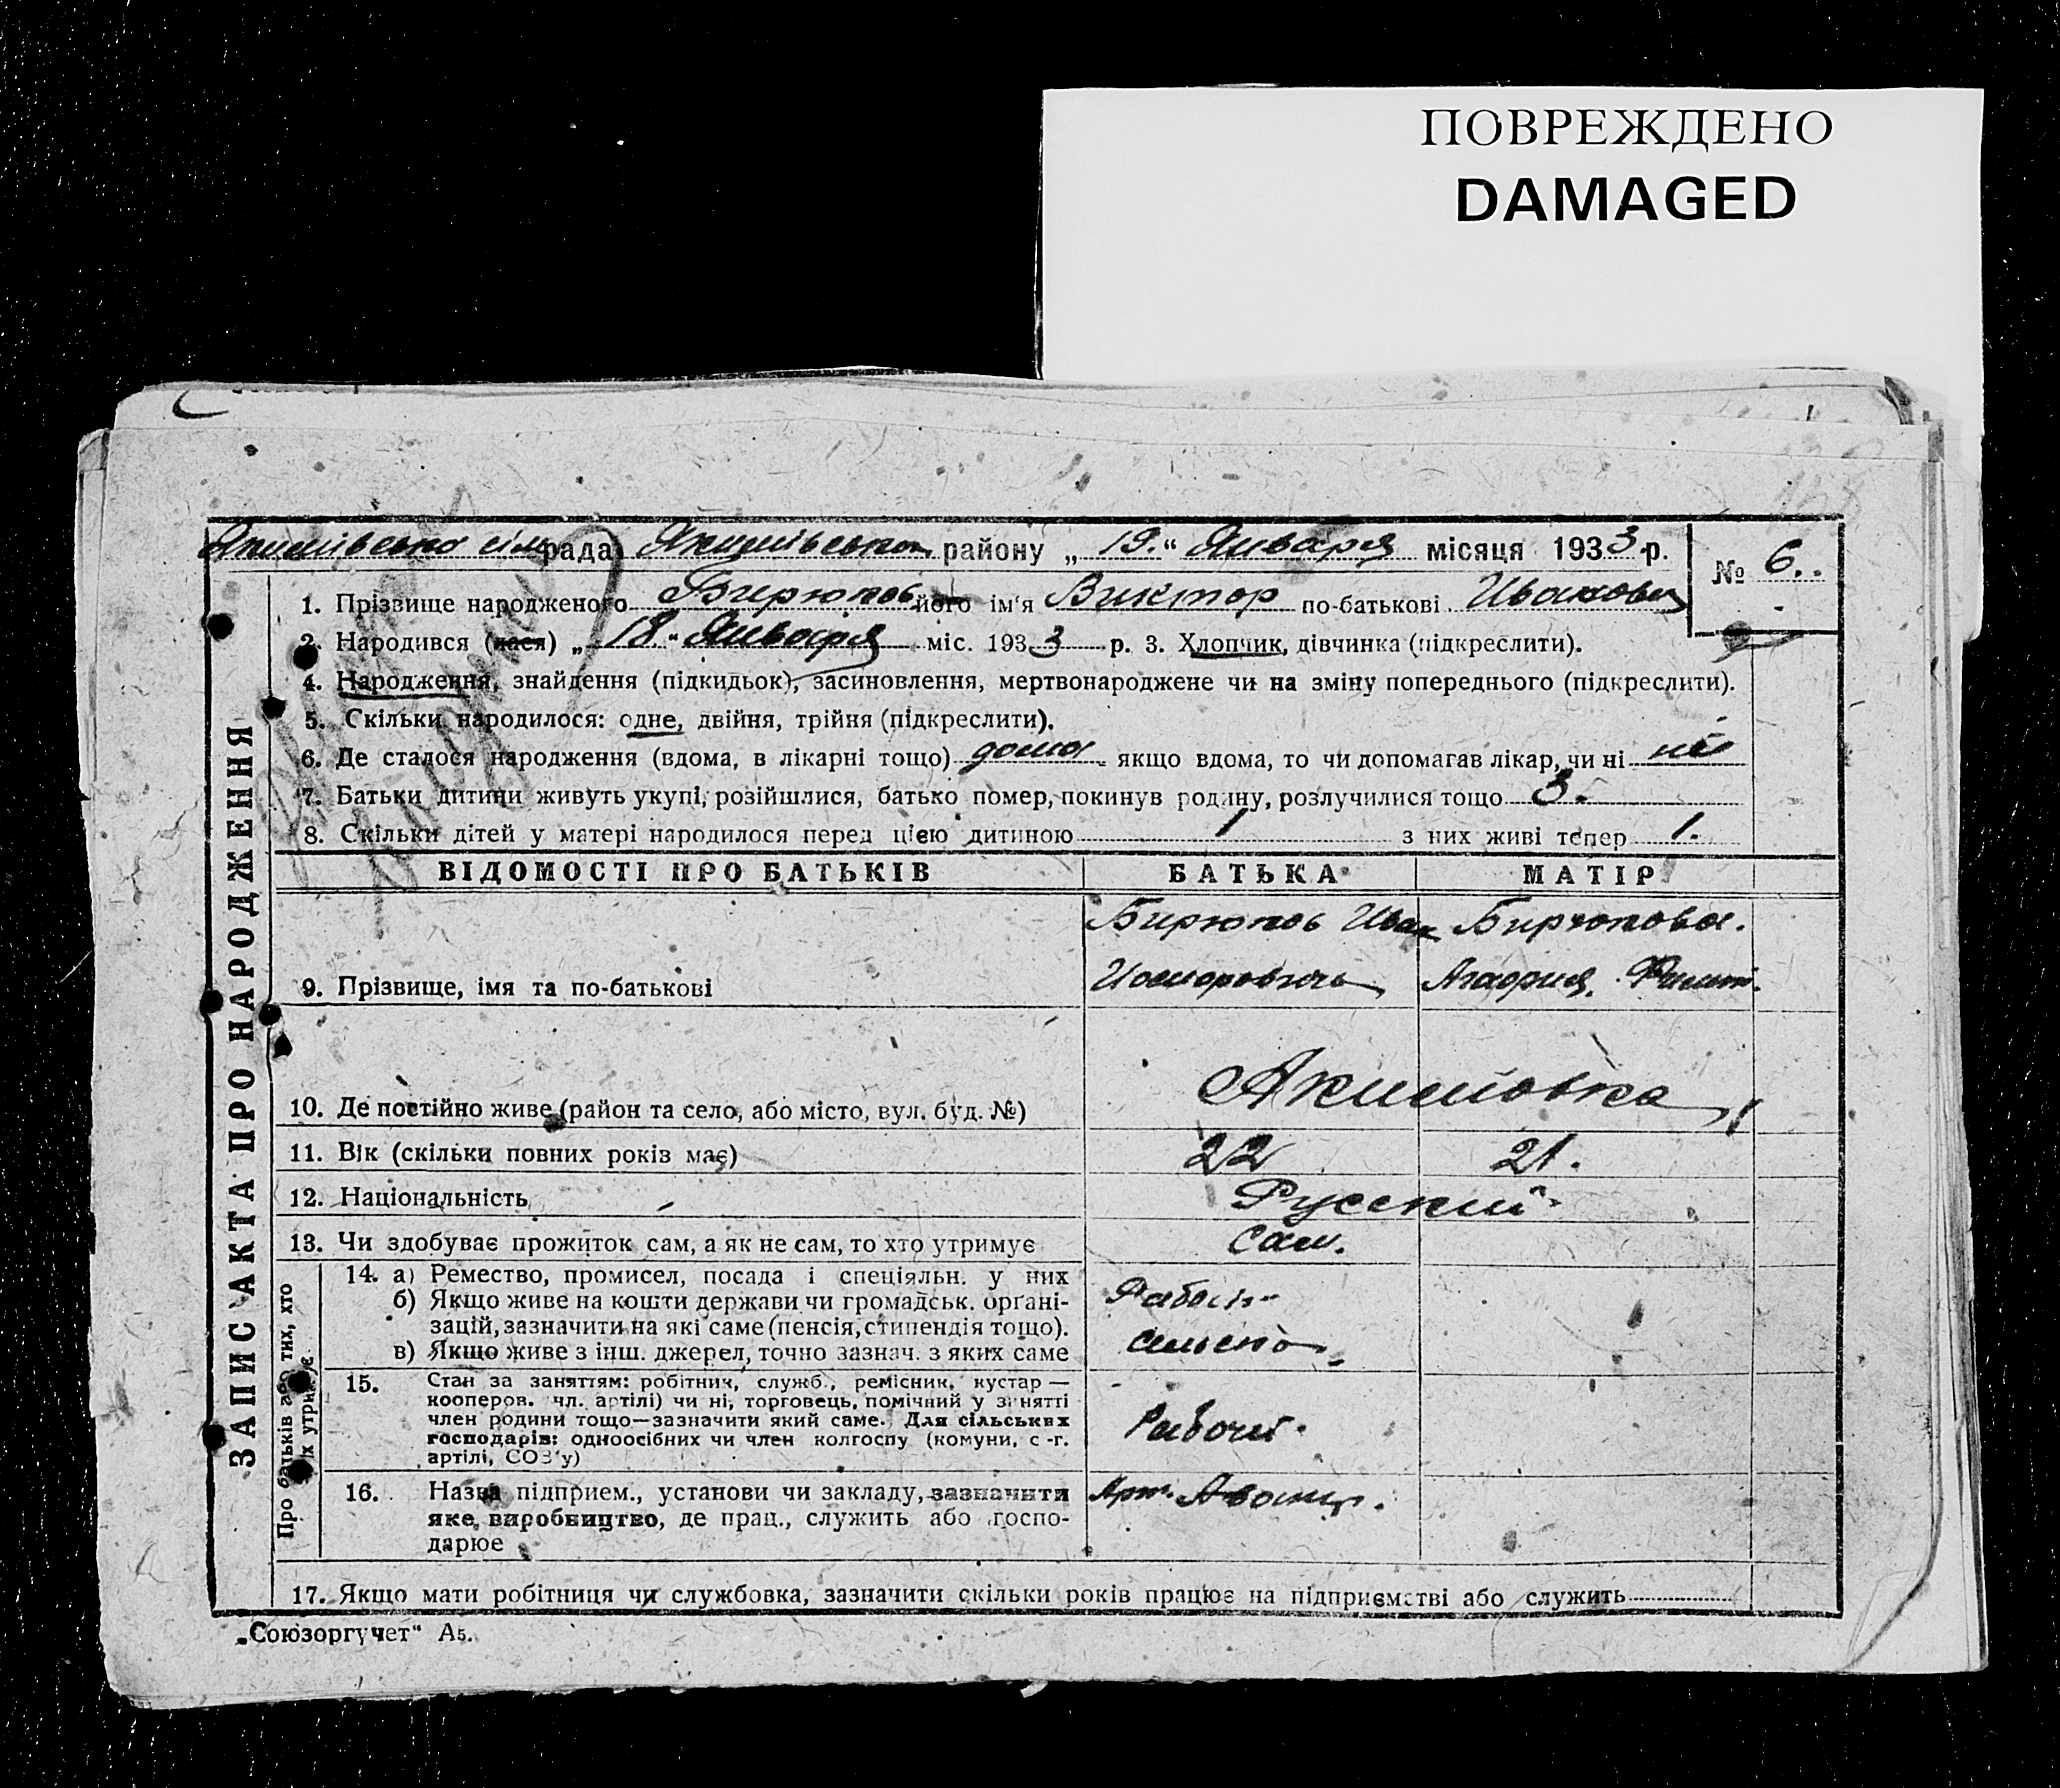 ПОВРЕЖДЕНО
DAMAGED
Якимівська сіл рада Якимівськ района „ 19. “ Января місяця 1933 р. № 6.
1. Прізвище народженого Бирюков його ім‘я Виктор по-батькові Иванович
2. Народився (лася) „ 18. “ Января міс. 1933 р. 3. Хлопчик, дівчинка (підкреслити).
4. Народження, знайдення (підкидьок), засиновлення, мертвонароджене чи на зміну попереднього (підкреслити).
5. Скільки народилося: одне, двійня, трійня (підкреслити).
6. Де сталося народження (вдома, в лікарні тощо) дома якщо вдома, то чи допомагав лікар, чи ні ні
7. Батьки дитини живуть укупі, розійшлися, батько помер, покинув родину, розлучилися тощо 3.
8. Скільки дітей у матері народилося перед цією дитиною 1 з них живі тепер 1.
ЗАПИС АКТА ПРО НАРОДЖЕННЯ
ВІДОМОСТІ ПРО БАТЬКІВ БАТЬКА МАТІР
Бирюков Иван Бирюкова.
9. Прізвище, імя та по-батькові Агафия
10. Де постійно живе (район та село, або місто, вул. буд. №) Акимовка
11. Вік (скільки повних років має) 22 21.
12. Національність Русский
13. Чи здобуває прожиток сам, а як не сам, то хто утримує Сам.
Про батьків або тих, хто їх утримує
14. а) Ремество, промисел, посада і спеціяльн. у них
б) Якщо живе на кошти держави чи громадськ. органі-
зацій, зазначити на які саме (пенсія, стипендія тощо).
в) Якщо живе з інш. джерел, точно зазнач. з яких саме
15. Стан за заняттям: робітник, служб., ремісник, кустар —
кооперов. чл. артілі) чи ні, торговець, помічний у знятті
член родини тощо—зазначити який саме. Для сільських
господарів: одноосібних чи член колгоспу (комуни, с -г. Рабочий.
артілі, СОЗ‘у)
16. Назва підприєм., установи чи закладу, зазначити Арт.
яке виробництво, де прац., служить або госпо-
дарює
17. Якщо мати робітниця чи службовка, зазначити скільки років працює на підприємстві або служить
„Союзоргучет“ А5.